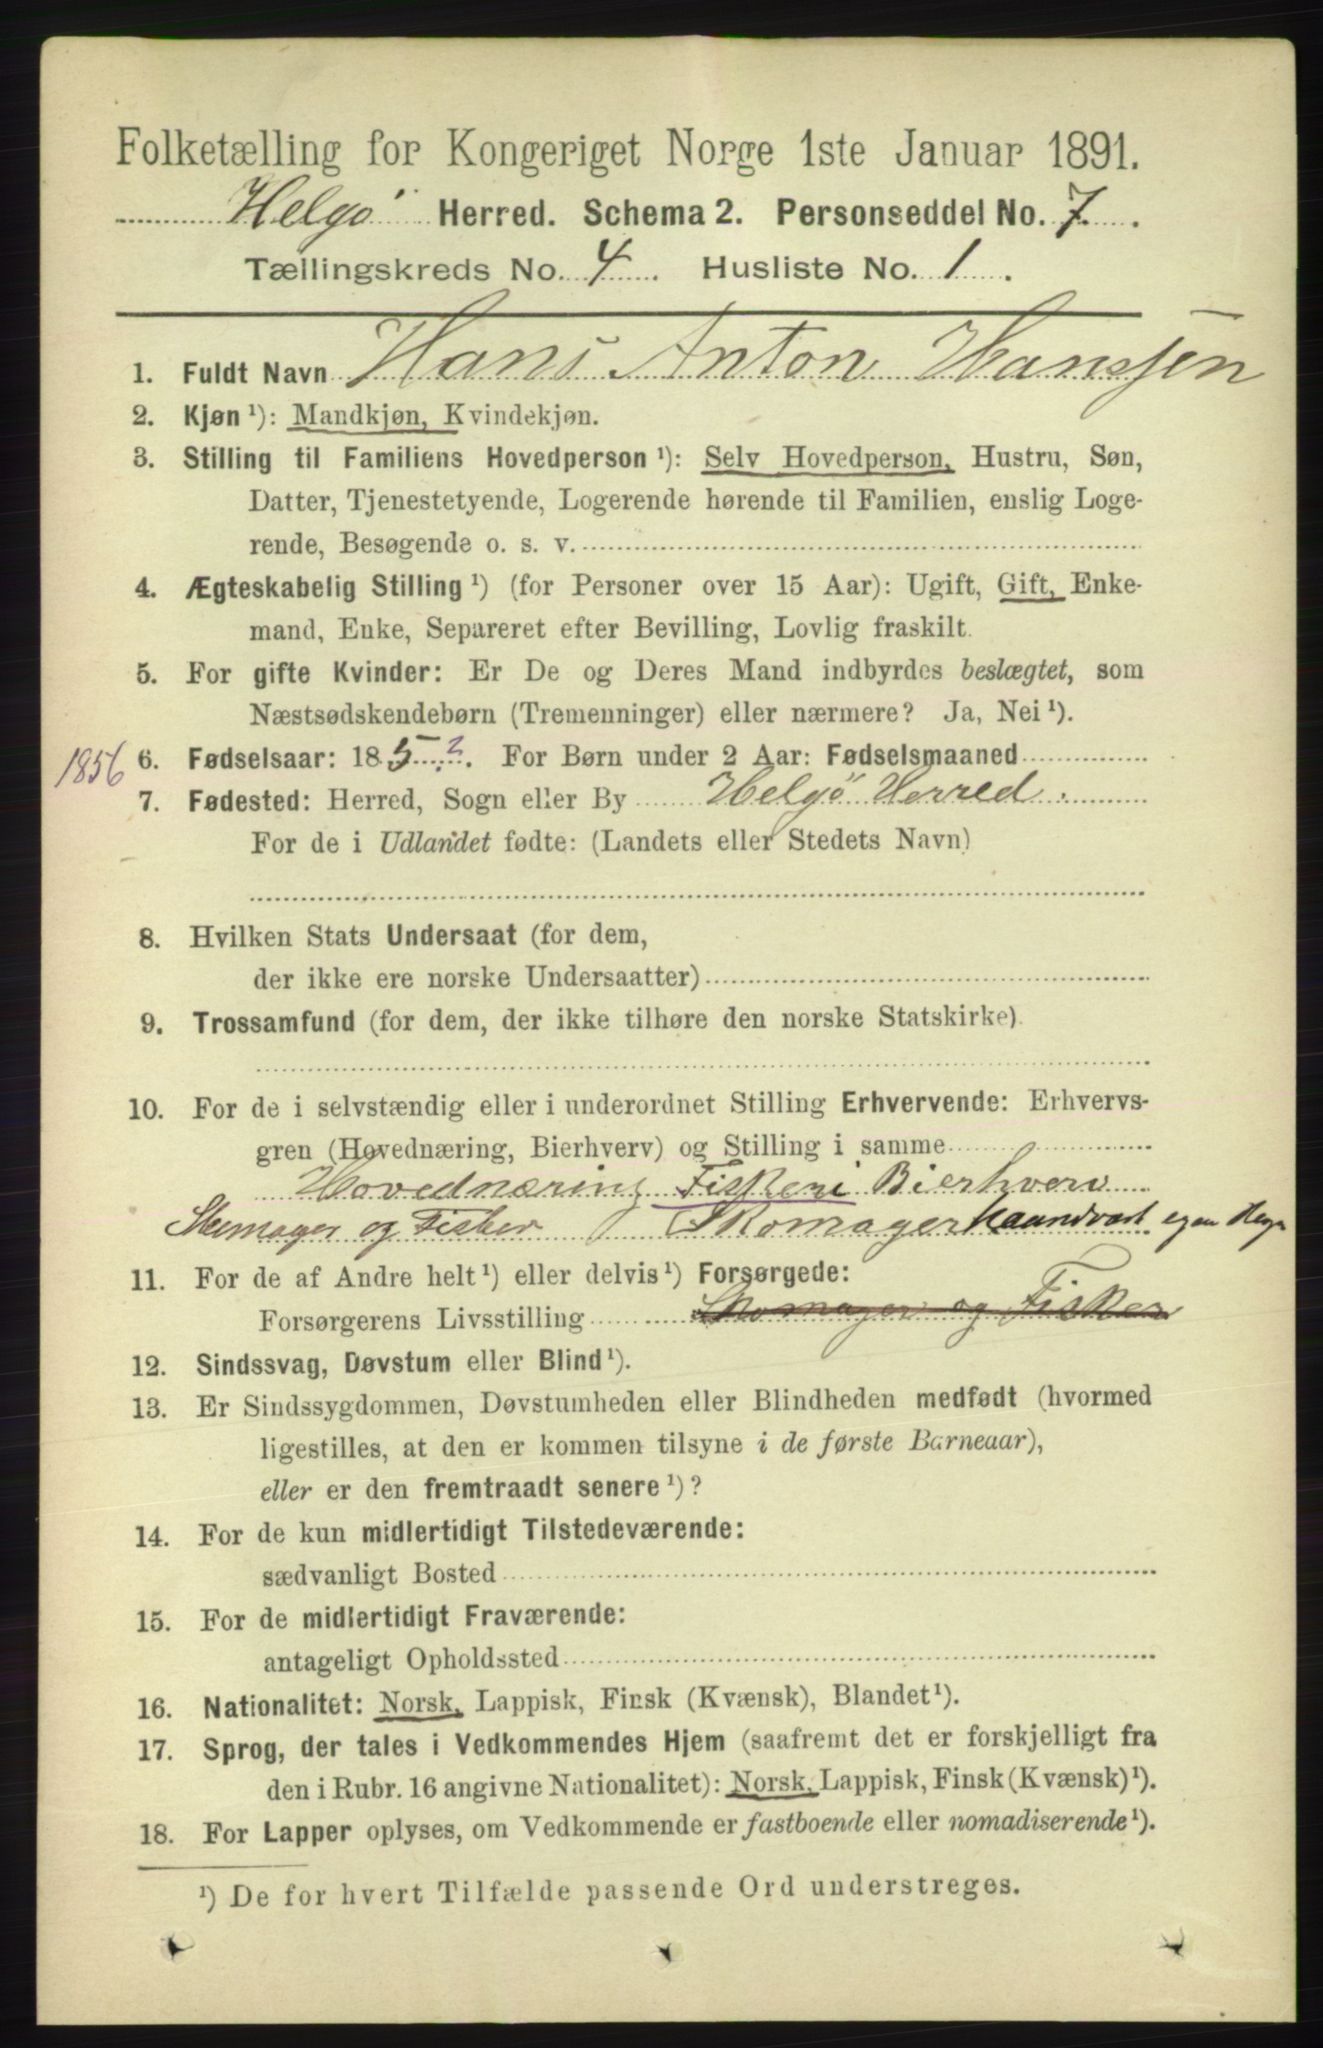 Folketælling for Kongeriget Norge 1ste Januar 1891.
Helgö Herred. Schema 2. Personseddel No. 7.
Tællingskreds No. 4. Husliste No. 1.
1. Fuldt Navn Hans Anton Hanssen
2. Kjøn ¹): Mandkjøn, Kvindekjøn.
3. Stilling til Familiens Hovedperson ¹): Selv Hovedperson, Hustru, Søn,
Datter, Tjenestetyende, Logerende hørende til Familien, enslig Loge-
rende, Besøgende o. s. v.
4. Ægteskabelig Stilling ¹) (for Personer over 15 Aar): Ugift, Gift, Enke-
mand, Enke, Separeret efter Bevilling, Lovlig fraskilt.
5. For gifte Kvinder: Er De og Deres Mand indbyrdes beslægtet, som
Næstsødskendebørn (Tremenninger) eller nærmere? Ja, Nei ¹).
1856 6. Fødselsaar: 185?. For Børn under 2 Aar: Fødselsmaaned
7. Fødested: Herred, Sogn eller By Helgö Herred.
For de i Udlandet fødte: (Landets eller Stedets Navn)
8. Hvilken Stats Undersaat (for dem,
der ikke ere norske Undersaatter)
9. Trossamfund (for dem, der ikke tilhøre den norske Statskirke).
10. For de i selvstændig eller i underordnet Stilling Erhvervende: Erhvervs-
gren (Hovednæring, Bierhverv) og Stilling i samme
Hovednæring Fiskeri Bierhverv
Skomager og Fisker Skomager Haandverk egen Regn
11. For de af Andre helt ¹) eller delvis ¹) Forsørgede:
Forsørgerens Livsstilling Skomager og Fisker
12. Sindssvag, Døvstum eller Blind ¹).
13. Er Sindssygdommen, Døvstumheden eller Blindheden medfødt (hvormed
ligestilles, at den er kommen tilsyne i de første Barneaar),
eller er den fremtraadt senere ¹)?
14. For de kun midlertidigt Tilstedeværende:
sædvanligt Bosted
15. For de midlertidigt Fraværende:
antageligt Opholdssted
16. Nationalitet: Norsk, Lappisk, Finsk (Kvænsk), Blandet ¹).
17. Sprog, der tales i Vedkommendes Hjem (saafremt det er forskjelligt fra
den i Rubr. 16 angivne Nationalitet): Norsk, Lappisk, Finsk (Kvænsk) ¹).
18. For Lapper oplyses, om Vedkommende er fastboende eller nomadiserende ¹).
¹) De for hvert Tilfælde passende Ord understreges.